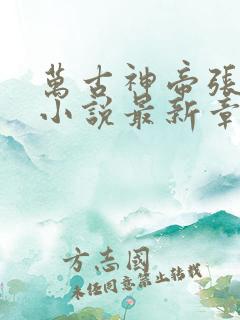 萬古神帝張
小說最新章
方志國
未經同意禁止轉載